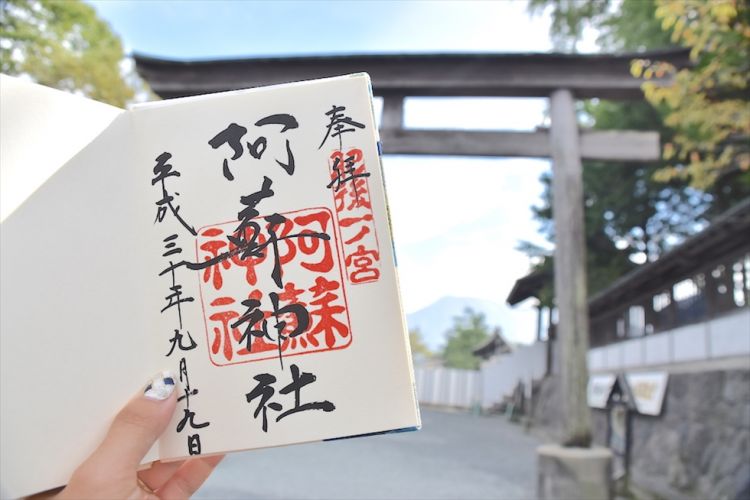 奉拝
肥後一ノ宮
阿蘇神社
阿蘇
神社
平成三十年九月十九日